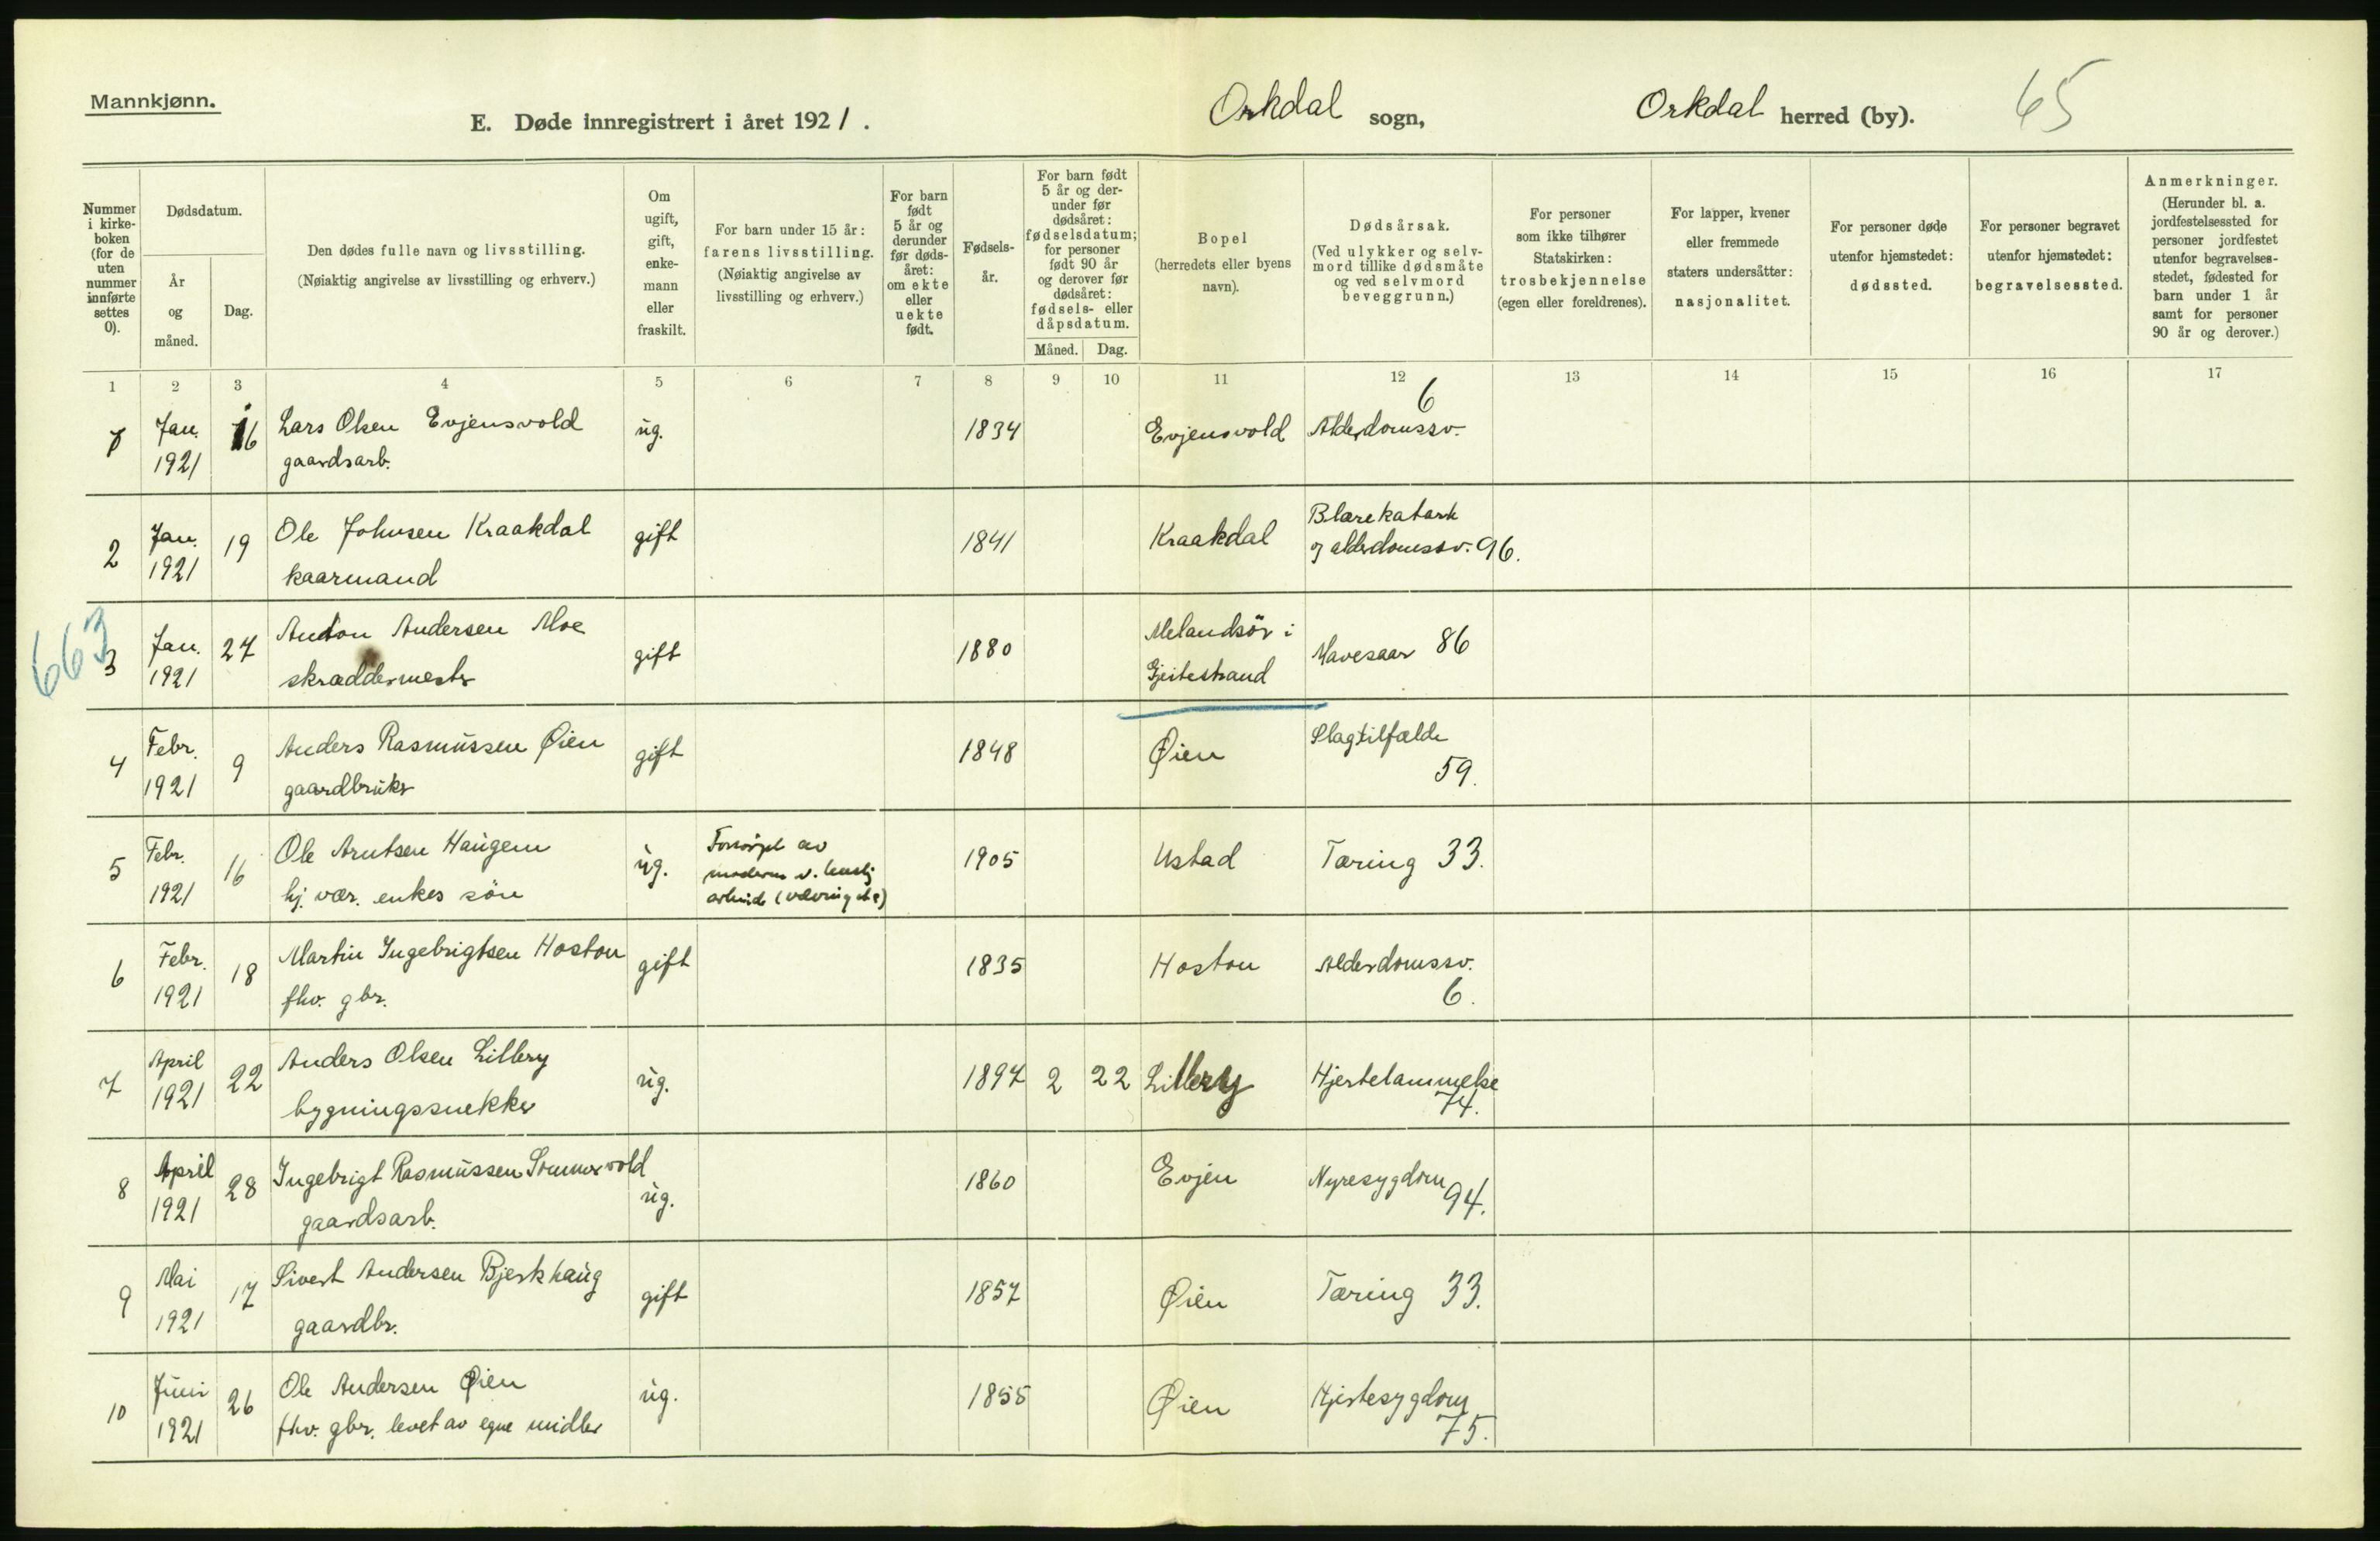 Mannkjønn.
E. Døde innregistrert i året 1921.
Orkdal sogn,
Orkdal herred (by).
65
Nummer i kirke-boken (for de uten nummer innførte settes 0).
Dødsdatum.
År og måned.
Dag.
Den dødes fulle navn og livsstilling.
(Nøiaktig angivelse av livsstilling og erhverv.)
Om ugift, gift, enke-mann eller fraskilt.
For barn under 15 år: farens livsstilling.
(Nøiaktig angivelse av livsstilling og erhverv.)
For barn født 5 år og derunder før døds-året: om ekte eller uekte født.
Fødsels-år.
For barn født 5 år og der-under før dødsåret: fødselsdatum; for personer født 90 år og derover før dødsåret: fødsels- eller dåpsdatum.
Måned.
Dag.
Bopel (herredets eller byens navn).
Dødsårsak.
(Ved ulykker og selv-mord tillike dødsmåte og ved selvmord beveggrunn.)
For personer som ikke tilhører Statskirken: trosbekjennelse (egen eller foreldrenes).
For lapper, kvener eller fremmede staters undersåtter: nasjonalitet.
For personer døde utenfor hjemstedet: dødssted.
For personer begravet utenfor hjemstedet: begravelsessted.
Anmerkninger.
(Herunder bl. a. jordfestelsessted for personer jordfestet utenfor begravelses-stedet, fødested for barn under 1 år samt for personer 90 år og derover.)
1 2 3 4 5 6 7 8 9 10 11 12 13 14 15 16 17
1 Jan. 1921 16 Lars Olsen Evjensvold ug. 1834 Evjensvold Alderdomssv. 6
gaardsarb.
2 Jan. 1921 19 Ole Johnsen Kraakdal gift 1841 Kraakdal Blærekatarh
kaarmand og alderdomssv. 96.
663
3 Jan. 1921 27 Anton Andersen Moe gift 1880 Melandsör i Mavesaar 86
skræddermester Gjeitestrand
4 Febr. 1921 9 Anders Rasmussen Øien gift 1848 Øien Slagtilfælde
gaardbruker 59.
5 Febr. 1921 16 Ole Arntsen Haugem ug. Forsörget av 1905 Ustad Tæring 33.
hj. vær. enkes sön moderen v. husly
arbeide
6 Febr. 1921 18 Martin Ingebrigtsen Hoston gift 1835 Hoston Alderdomssv.
fhv. gbr. 6.
7 April 1921 22 Anders Olsen Lillery ug. 1897 2 22 Lillery Hjertelammelse
bygningssnekker 74.
8 April 1921 28 Ingebrigt Rasmussen Sommervold ug. 1860 Evjen Nyresygdom
gaardsarb. 94.
9 Mai 1921 17 Sivert Andersen Bjerkhaug gift 1857 Øien Tæring 33.
gaardbr.
10 Juni 1921 26 Ole Andersen Øien ug. 1855 Øien Hjertesygdom
fhv. gbr. levet av egne midler 75.